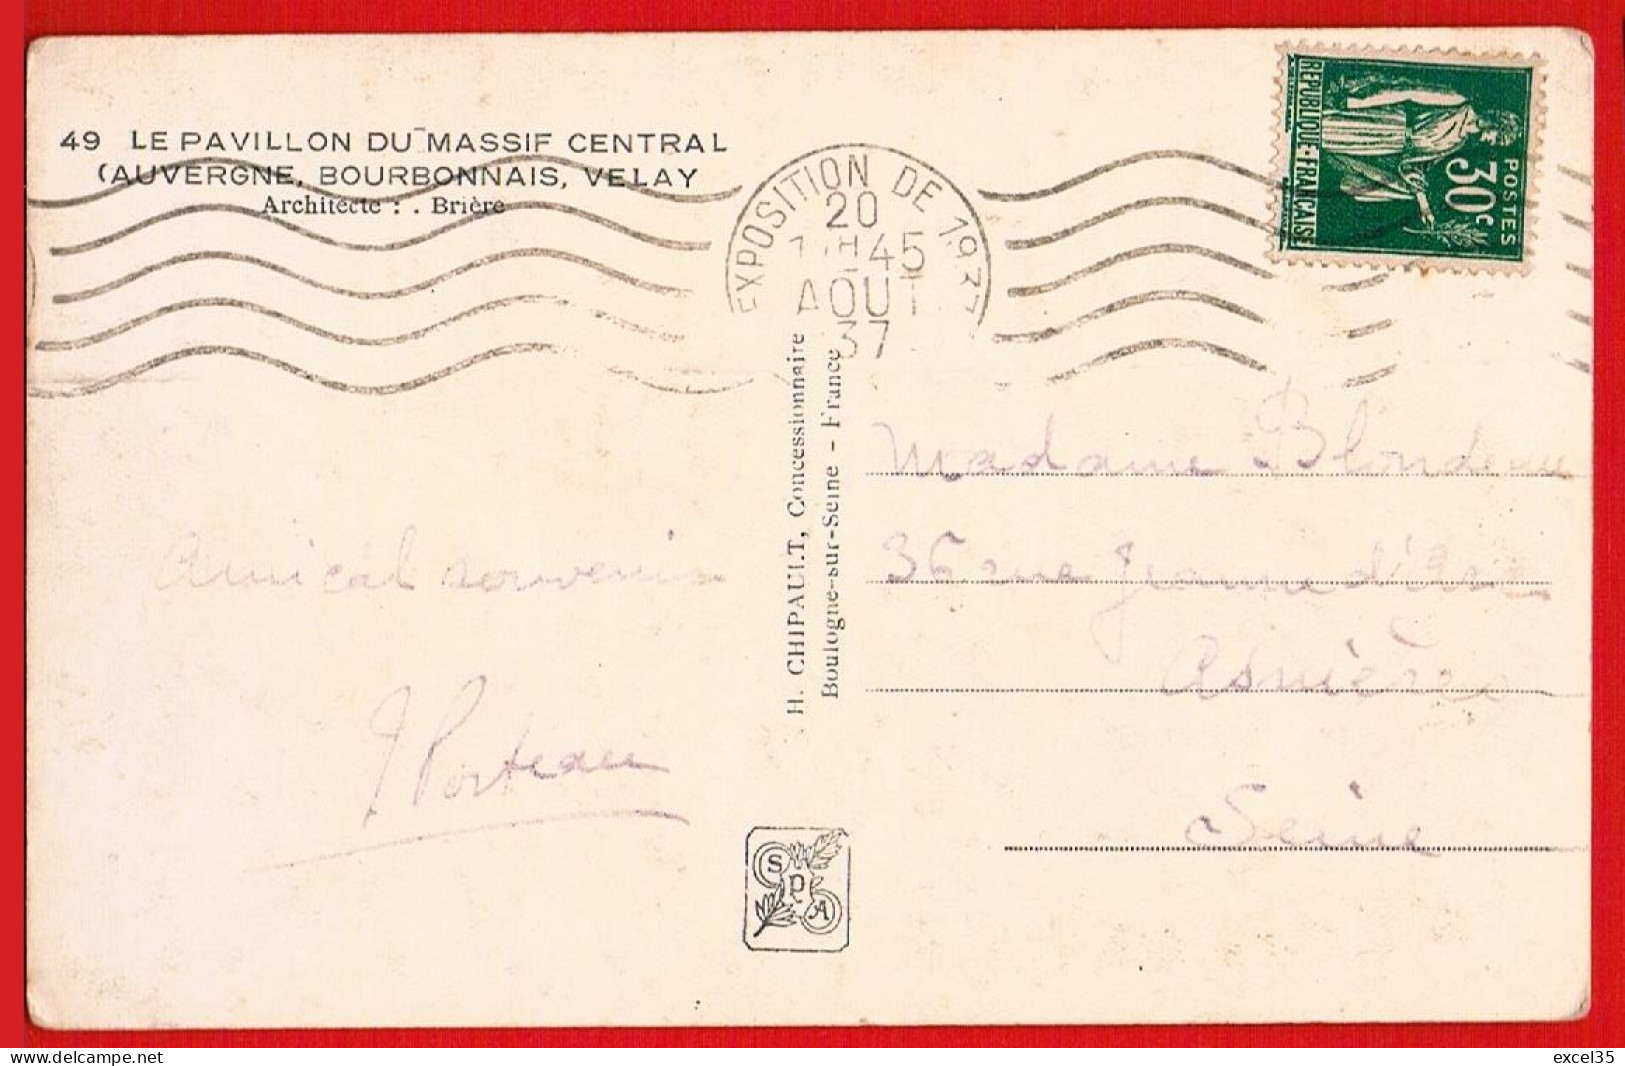 49 LE PAVILLON DU MASSIF CENTRAL
(AUVERGNE, BOURBONNAIS, VELAY
Architecte : . Brière
EXPOSITION DE 1937
20
H45
AOUT
37
REPUBLIQUE·FRANÇAISE
30c
POSTES
H. CHIPAULT, Concessionnaire
Boulogne-sur-Seine - France
Amical souvenir
Porteau
Madame Blondeau
36 rue Jeanne d'Arc
Asnières
Seine
SPA
www.delcampe.net
excel35